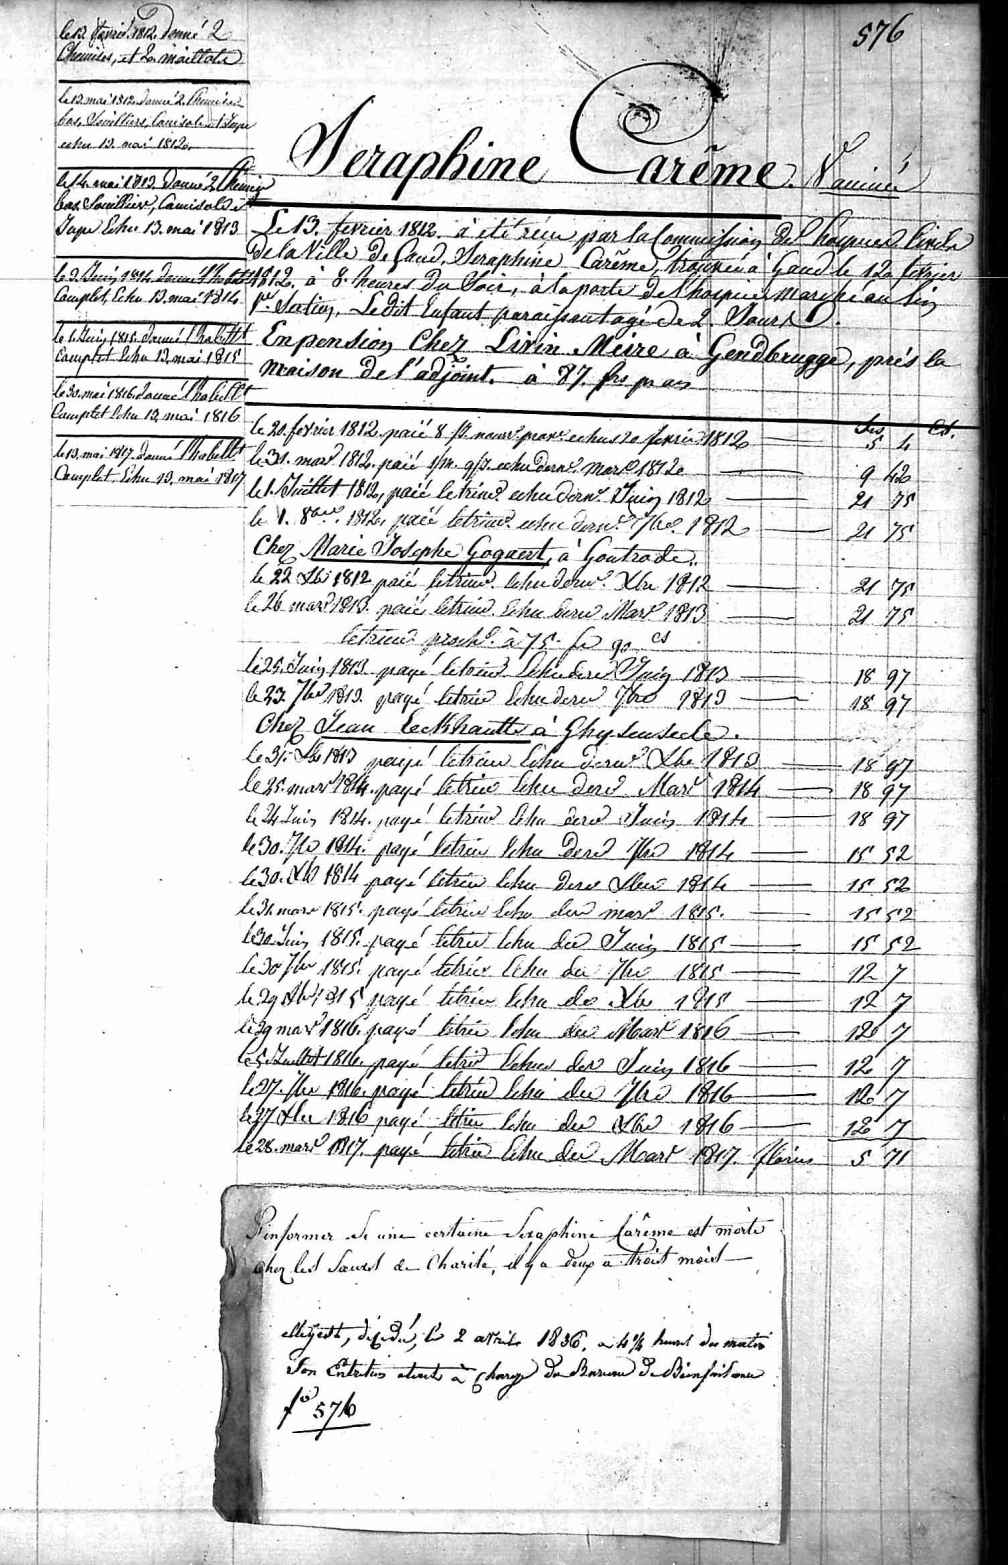 576
le 13 février 1812. Donné 2
Chemises, et 2 maillots
le 12 mai 1812. Donné 2 Chemises
bas, Souilliers, Camisole et Jupe
echu 13 mai 1812.
le 14 mai 1813. Donné 2 Chemises
bas Souilliers, Camisole et
Jupe Echu 13. mai 1813
le 3 Juin 1814 Donné l'habillt
Complet, Echu 13. mai 1814.
le 1 Juin 1815. donné l'habillt
Complet Echu 13 mai 1815
le 30 mai 1816. Donné l'habillt
Complet Echu 13. mai 1816
le 13. mai 1817. donné l'habillt
Complet. Echu 13. mai 1817
Seraphine Carême. Vaccinée
Le 13. fevrier 1812. à été reçu par la Commission des hospices Civils
de la Ville de Gand, Seraphine Carême, trouvée à Gand le 12 fevrier
1812, à 8. heures du Soir, à la porte de l'hospice marché au lin
1re Section, Ledit Enfant paraissant agé de 2 Jours.
En pension Chez Livin Meire à Gendbrugge, prés la
maison de l'adjoint. à 87. frs par an
frs Cs.
le 20. fevrier 1812. paié 8 echus 20 fevrier 1812 5 4
le 31. mars 1812. paié echu dern. mars 1812 9 42
le 1. Juillet 1812, paié le trim. echu dern. Juin 1812 21 75
le 1. 8bre. 1812, paié le trim. echu dern. 7bre. 1812 21 75
Chez Marie Josephe Gogaert, à Gontrode.
le 22 Xbr 1812 paié le trim. Echu dern. Xbre 1812 21 75
le 26 mars 1813. paié le trim. Echu dern Mars 1813 21 75
le trim. proch. à 75. fr 90 cs
le 25. Juin 1813. payé le trim. Echu dern Juin 1813 18 97
le 23. 7br 1813. payé le trim Echu dern 7bre 1813 18 97
Chez Jean Eeckhautte à Ghysenseele.
le 31. Xbr 1813 payé le trim Echu dern. Xbre 1813 18 97
le 25. mars 1814. payé le trim Echu dern Mars 1814 18 97
le 24 Juin 1814. payé le trim Echu dern Juin 1814 18 97
le 30. 7br 1814. payé le trim Echu dern 7bre 1814 15 52
le 30. Xbr 1814 payé le trim Echu dern Xbre 1814 15 52
le 31 mars 1815. payé le trim Echu der mars 1815. 15 52
le 30. Juin 1815. payé le trim Echu der Juin 1815 15 52
le 30 7br 1815. payé le trim Echu der 7bre 1815 12 7
le 29 Xbr 1815 payé le trim Echu de Xbre 1815 12 7
le 29 mars 1816. payé le trim Echu der Mars 1816 12 7
le 5. Juillet 1816. payé le trim Echu der Juin 1816 12 7
le 27. 7br 1816. payé le trim Echu der 7bre 1816 12 7
le 27 Xbr 1816 payé le trim Echu der Xbre 1816 12 7
le 28. mars 1817. payé le trim Echu der Mars 1817. florins 5 71
S'informer si une certaine Seraphine Carême est morte
chez les Sœurs de Charité, il y a deux a trois mois
elle y est, décédé, le 2 avril 1836, a 4½ heures du matin
Son Entretien etait à Charge du Bureau de Bienfaisance
fo 576